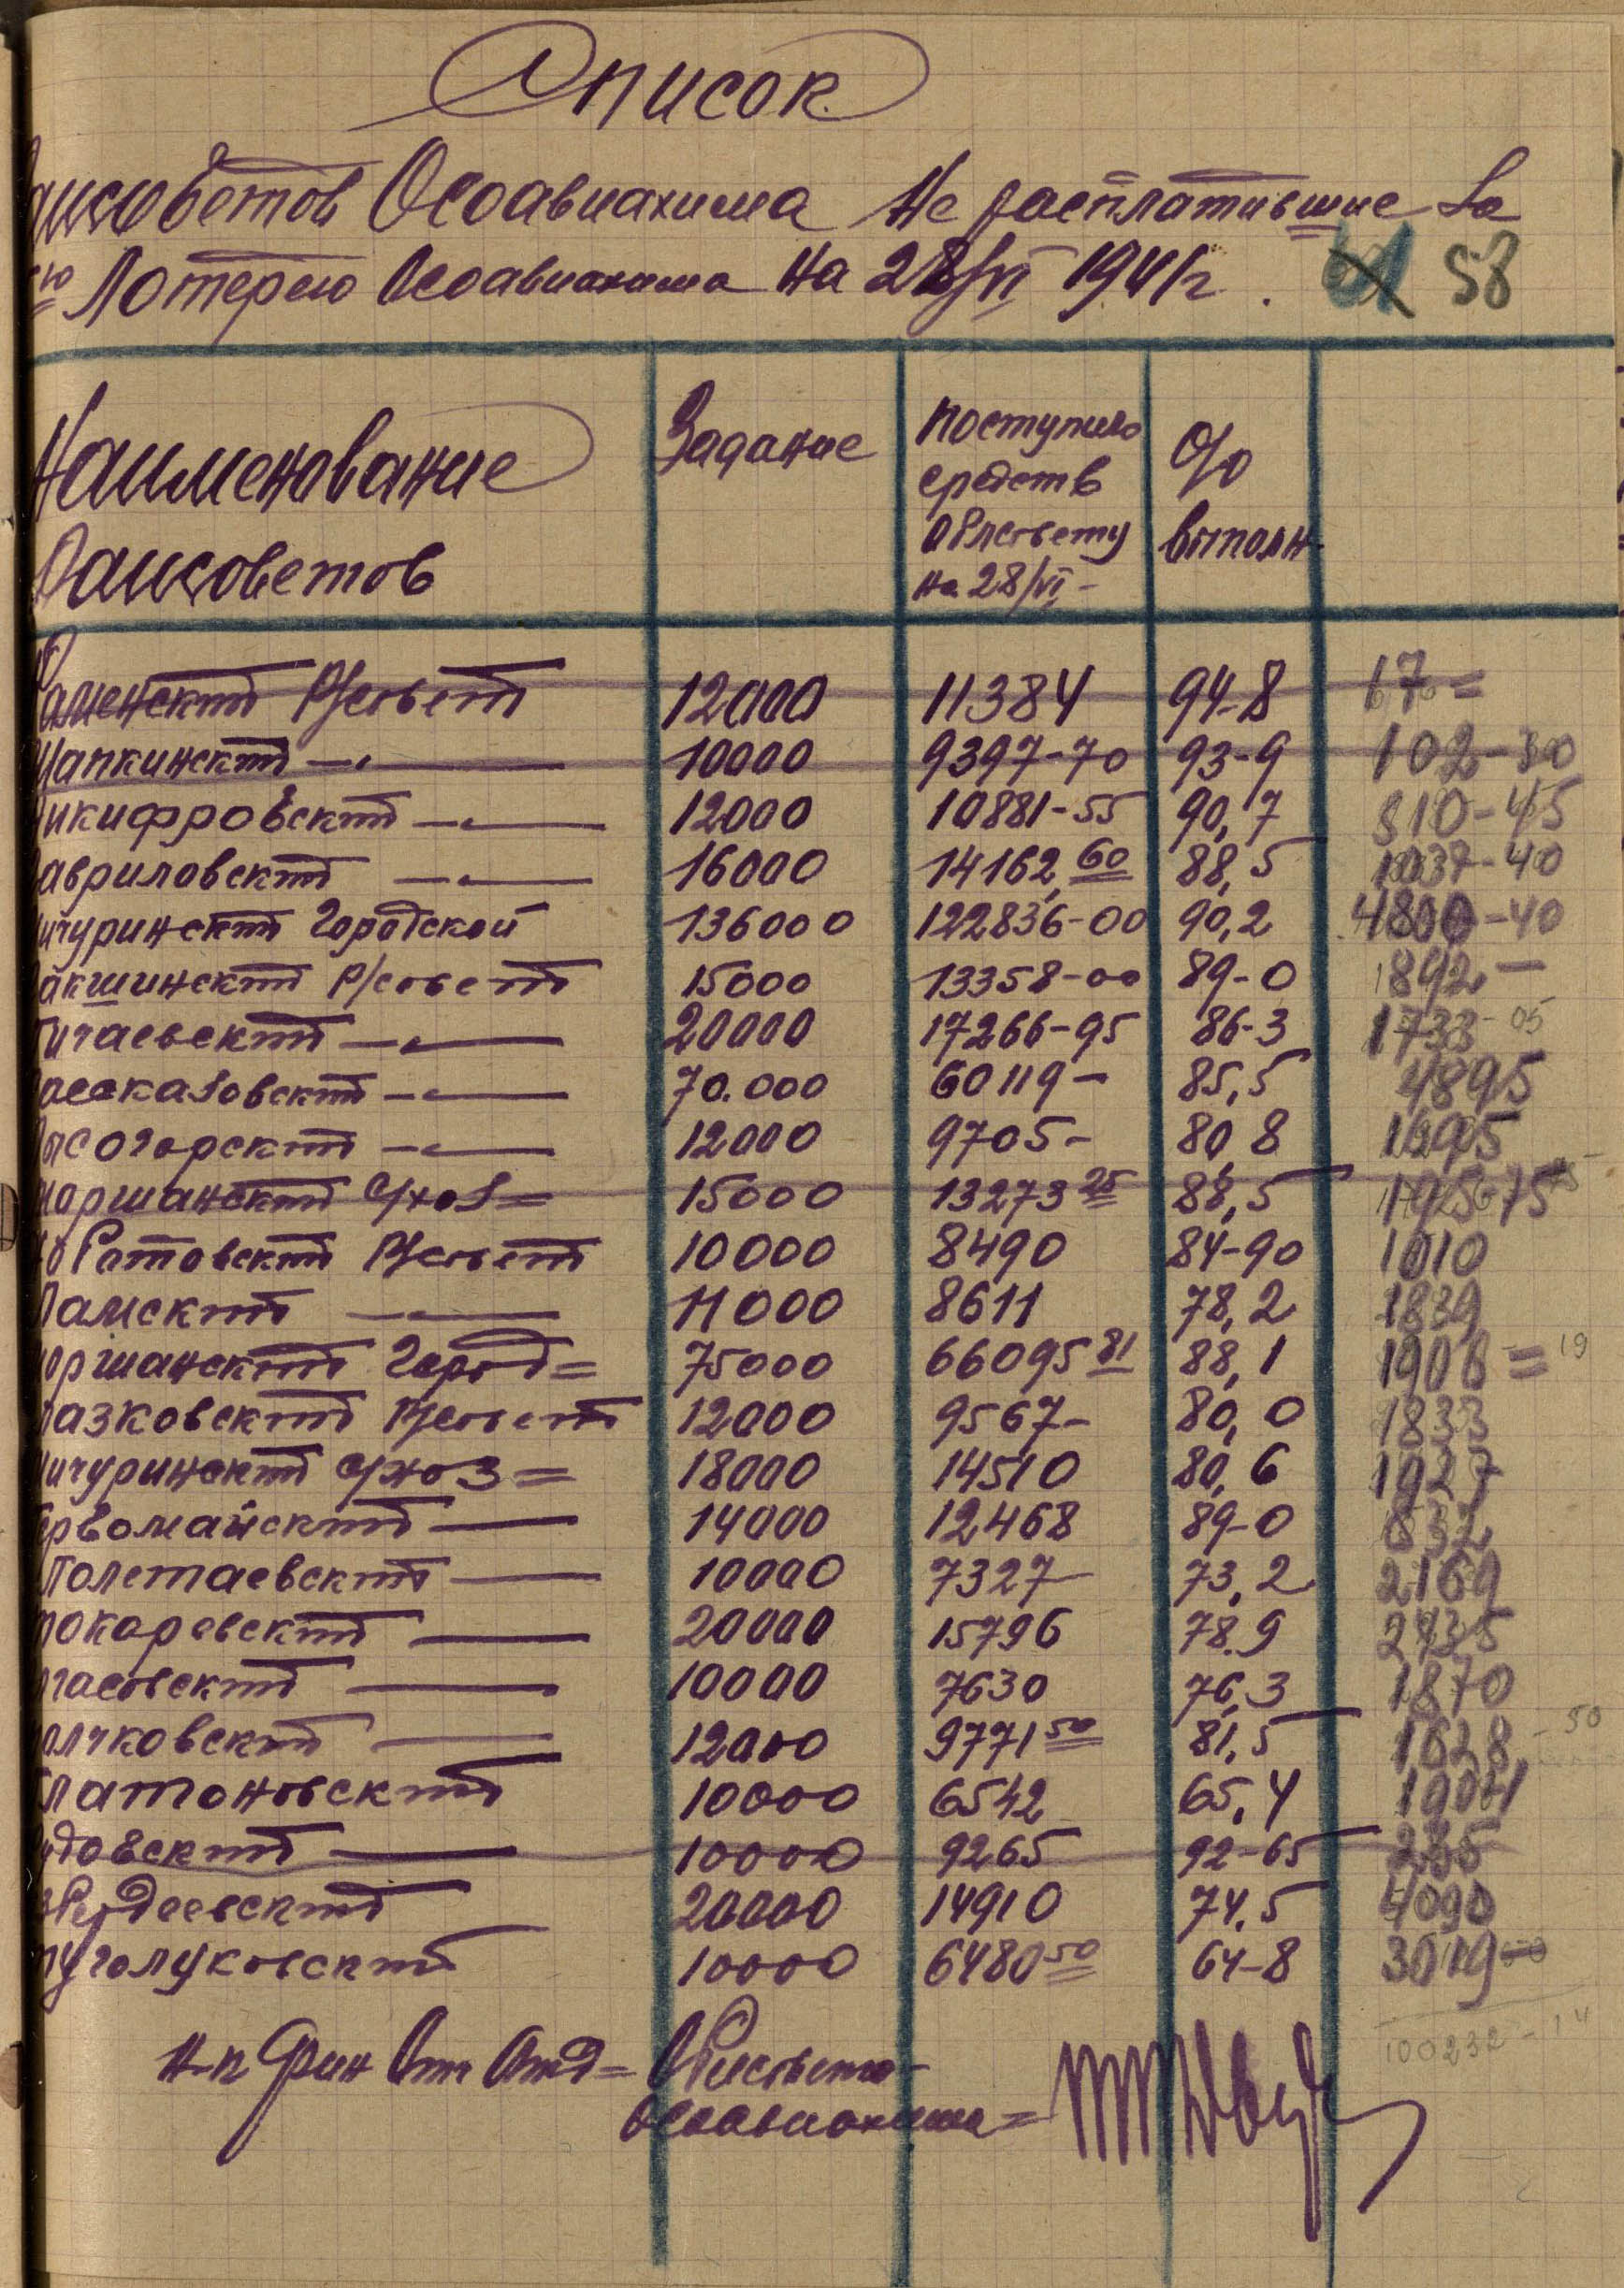 Список
айсоветов Осоавиахима не расплатившие за
ю Лотерею Осоавиахима на 28/VI 1941 г. 58
Наименование Райсоветов
Задание
поступило средств Облсовету на 28/VI-
% выполн
аменский Р/совет 12000 11384 94-8 67=
Шапкинский —"— 10000 9397-70 93-9 102-30
икифровский —"— 12000 10881-55 90,7 310-45
авриловский —"— 16000 14162,60 88,5 1037-40
ичуринский Городской 136000 122836-00 90,2 4800-40
акшинский Р/совет 15000 13358-00 89-0 892—
ичаевский —"— 20000 17266-95 86-3 1733-05
ассказовский —"— 70.000 60119- 85,5 4895
ысогорский —"— 12000 9705- 80,8 1695
оршанский с/хоз= 15000 13273 25 88,5
Юрлтовский Р/совет 10000 8490 84-90 1010
Ламский —"— 11000 8611 78,2 1839
оршанский Город= 75000 66095 81 88,1 1908= 19
лазковский Р/совет 12000 9567- 80,0 1833
ичуринский с/хоз= 18000 14510 80,6 1927
ервомайский — 14000 12468 89-0 832
Полетаевский — 10000 7327 73,2 2169
токаревский — 20000 15796 78.9 2435
гасовский — 10000 7630 76,3 1870
олчковский — 12000 9771 50 81,5 1628-50
латоновский 10000 6542 65,4
удовский — 10000 9265 92-65 235
збердеевский 20000 14910 74,5 4090
уголуковский 10000 6480 50 64-8 3019-50
100232-14
Н-к Фин Отд= Облсовета
Осоавиахима=